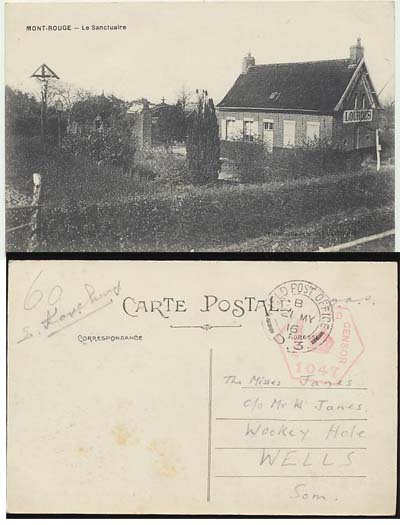 MONT-ROUGE — Le Sanctuaire
LOURDES
60
CARTE POSTALE
CORRESPONDANCE
FIELD POST OFFICE
B
21 MY
16
D.3.
ADRESSE
CENSOR
1047
O.a.s.
The Misses Janes
c/o Mr W Janes,
Wookey Hole
WELLS
Som.